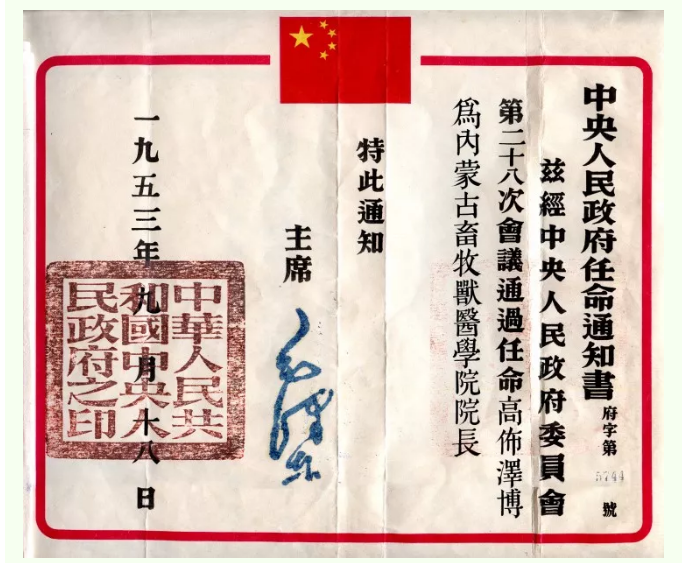 中央人民政府任命通知書 府字第 5744 號
茲經中央人民政府委員會
第二十八次會議通過任命高佈澤博
爲內蒙古畜牧獸醫學院院長
特此通知
主席 毛澤東
一九五三年九月十八日
中華人民共
和國中央人
民政府之印